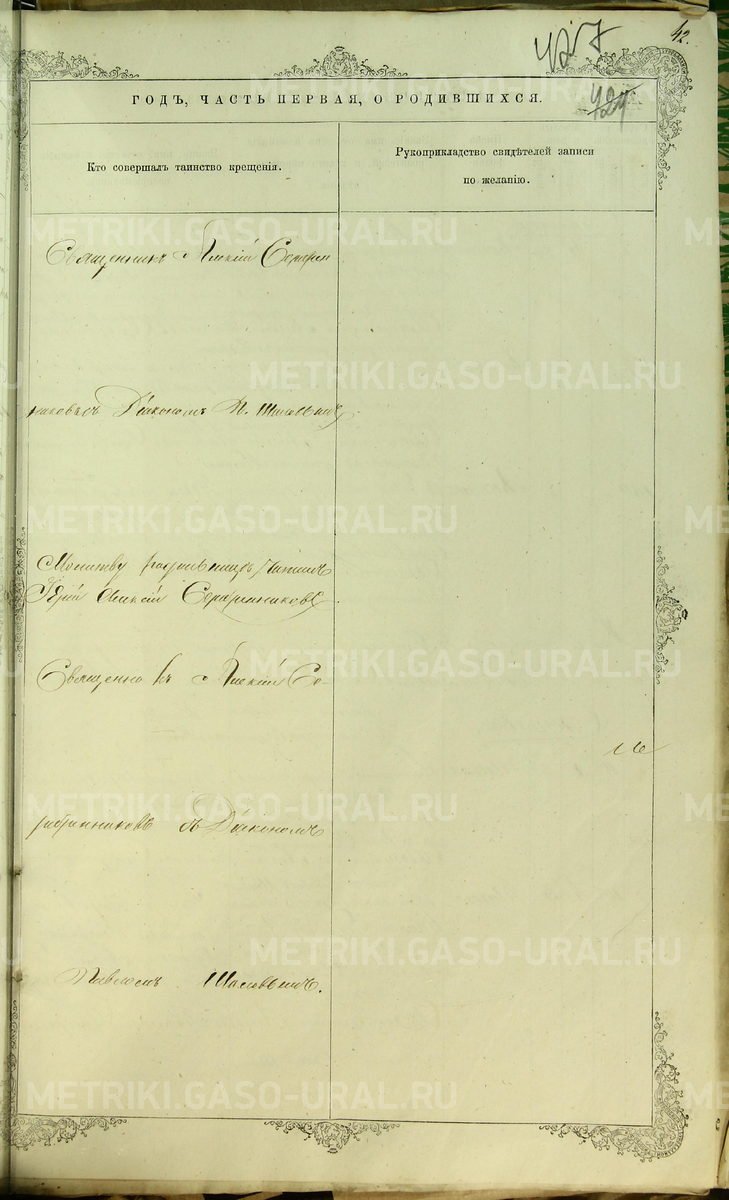 42.
427
ГОДЪ, ЧАСТЬ ПЕРВАЯ, О РОДИВШИХСЯ.
Кто совершалъ таинство крещенія.
Рукоприкладство свидѣтелей записи
по желанію.
Священникъ Алексій Серебрен
никовъ съ Діакономъ П.
Молитву родильницѣ читалъ
Іерей Алексій Серебрянниковъ
Священникъ Алексій Се-
ребрянниковъ съ Діакономъ
Павломъ
METRIKI.GASO-URAL.RU